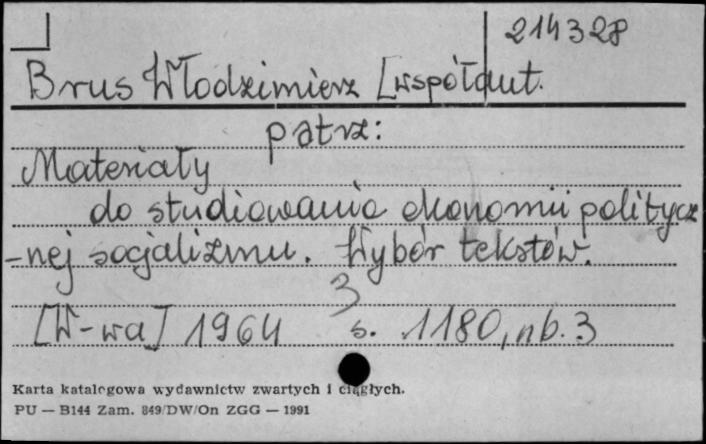 214328
Brus Włodzimierz [współaut.
patrz:
Materiały
do studiowania ekonomii politycz
-nej socjalizmu. Wybór tekstów.
3
[W-wa] 1964 s. 1180, nb. 3
Karta katalogowa wydawnictw zwartych i ciągłych.
PU — B144 Zam. 849/DW/On ZGG — 1991